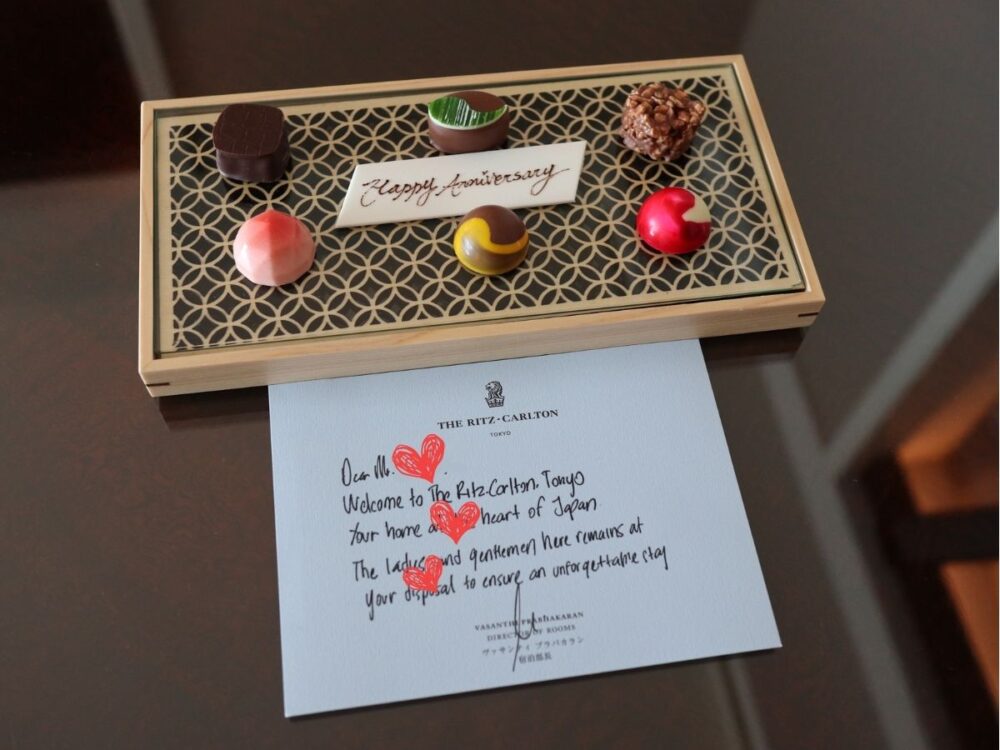 Happy Anniversary
THE RITZ-CARLTON
TOKYO
Dear Mr.
Welcome to The Ritz-Carlton, Tokyo
Your home heart of Japan.
The ladies and gentlemen here remains at
your disposal to ensure an unforgettable stay
VASANTHI PRABHAKARAN
DIRECTOR OF ROOMS
ヴァサンティ プラバカラン
宿泊部長